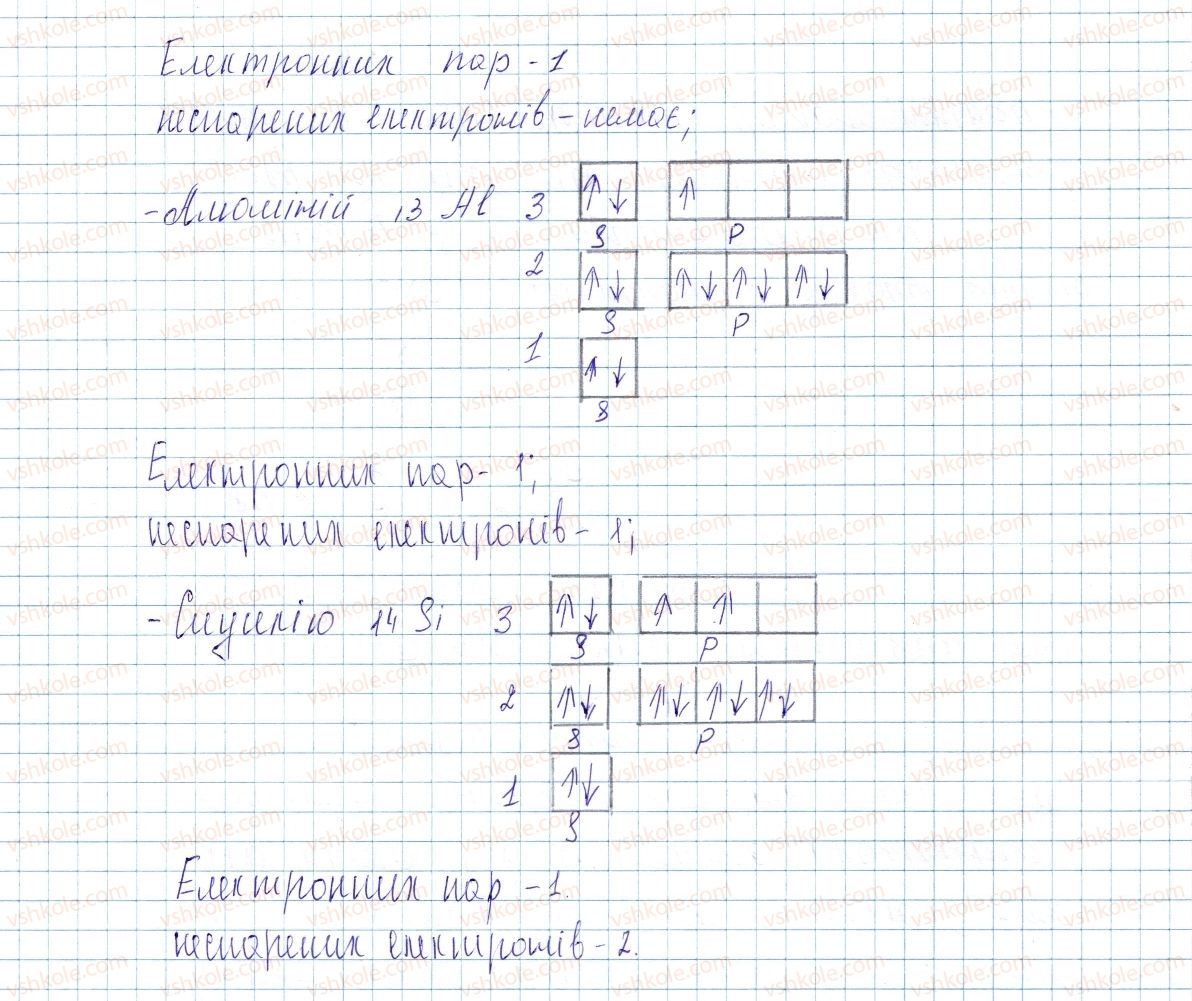 Електронних пар - 1
неспарених електронів - немає;
- Алюміній 13 Al 3 ↑↓ ↑
s p
2 ↑↓ ↑↓ ↑↓ ↑↓
s p
1 ↑↓
s
Електронних пар - 1;
неспарених електронів - 1;
- Силіцію 14 Si 3 ↑↓ ↑ ↑
s p
2 ↑↓ ↑↓ ↑↓ ↑↓
s p
1 ↑↓
s
Електронних пар - 1.
неспарених електронів - 2.
vshkole.com